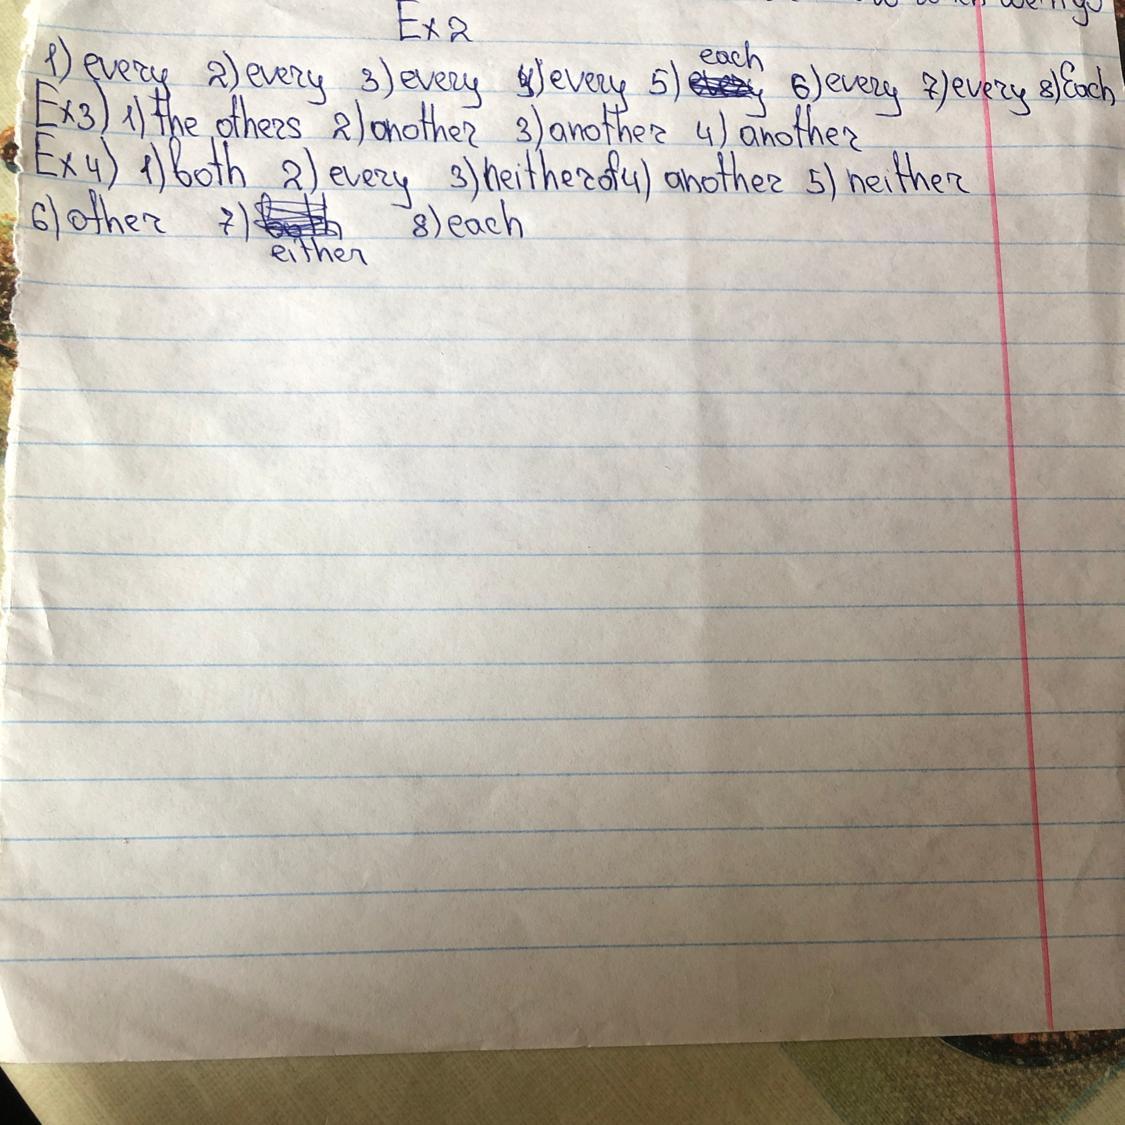 Ex 2
1) every 2) every 3) every 4) every 5) each 6) every 7) every 8) Each
Ex 3) 1) the others 2) another 3) another 4) another
Ex 4) 1) both 2) every 3) neither of 4) another 5) neither
6) other 7) either 8) each